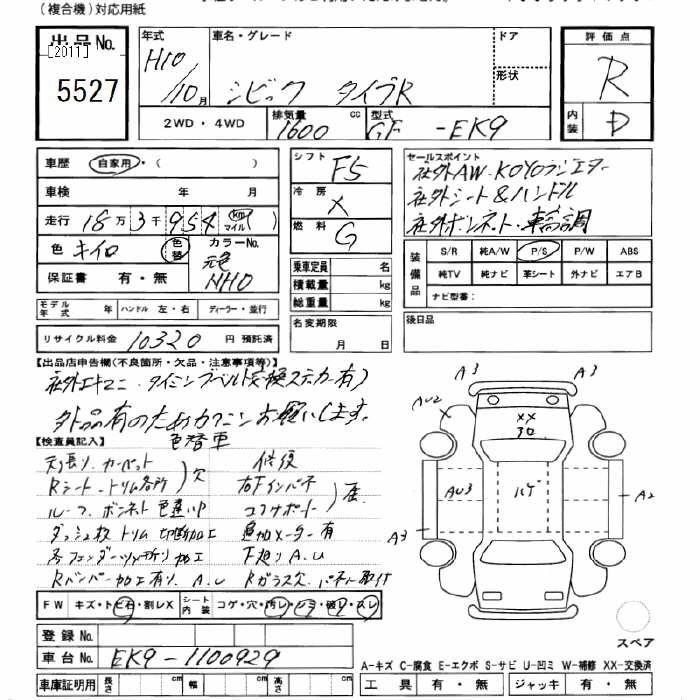 (複合機)対応用紙
出品No.
[2011]
5527
年式
H10
/10月
車名・グレード
シビック タイプR
ドア
形状
2WD・4WD
排気量
1600
cc
型式
GF -EK9
評価点
R
内装
D
車歴 自家用・( )
車検 年 月
走行 18万3千954 km マイル )
色 キイロ 色替
カラーNo.
元色
NH0
保証書 有・無
モデル年式 年 ハンドル 左・右 ディーラー・並行
リサイクル料金 10320 円 預託済
シフト F5
冷房 X
燃料 G
乗車定員 名
積載量 kg
総重量 kg
名変期限
月 日
セールスポイント
社外AW・KOYOラジエター
社外シート&ハンドル
社外ボンネット・車高調
装備品
S/R 純A/W P/S P/W ABS
純TV 純ナビ 革シート 外ナビ エアB
ナビ型番:
後日品
【出品店申告欄(不良箇所・欠品・注意事項等)】
社外エキマニ・タイミングベルト交換ステッカー有)
外品有のためカクニンお願いします。
【検査員記入】 色替車
天張り、カーペット
Rシート、トリム各所)穴
ルーフ、ボンネット色違い
ダッシュ枚 トリム 切断加工
各フェンダーツメ折り加工
Rバンパー加工有り、A.U
修復
右Fインパネ
コアサポート)曲
追加メーター有
下廻りA.U
Rガラス欠、パネル取付
FW キズ・トビ石・割レX
シート内装 コゲ・穴・汚レ・シミ・破レ・スレ
登録No.
車台No. EK9-1100929
車庫証明用 長さ cm 幅 cm 高さ cm
A3
A3
AU2
XX
30
AU3
ハゲ
A2
A3
スペア
A-キズ C-腐食 E-エクボ S-サビ U-凹ミ W-補修 XX-交換済
工具 有・無 ジャッキ 有・無